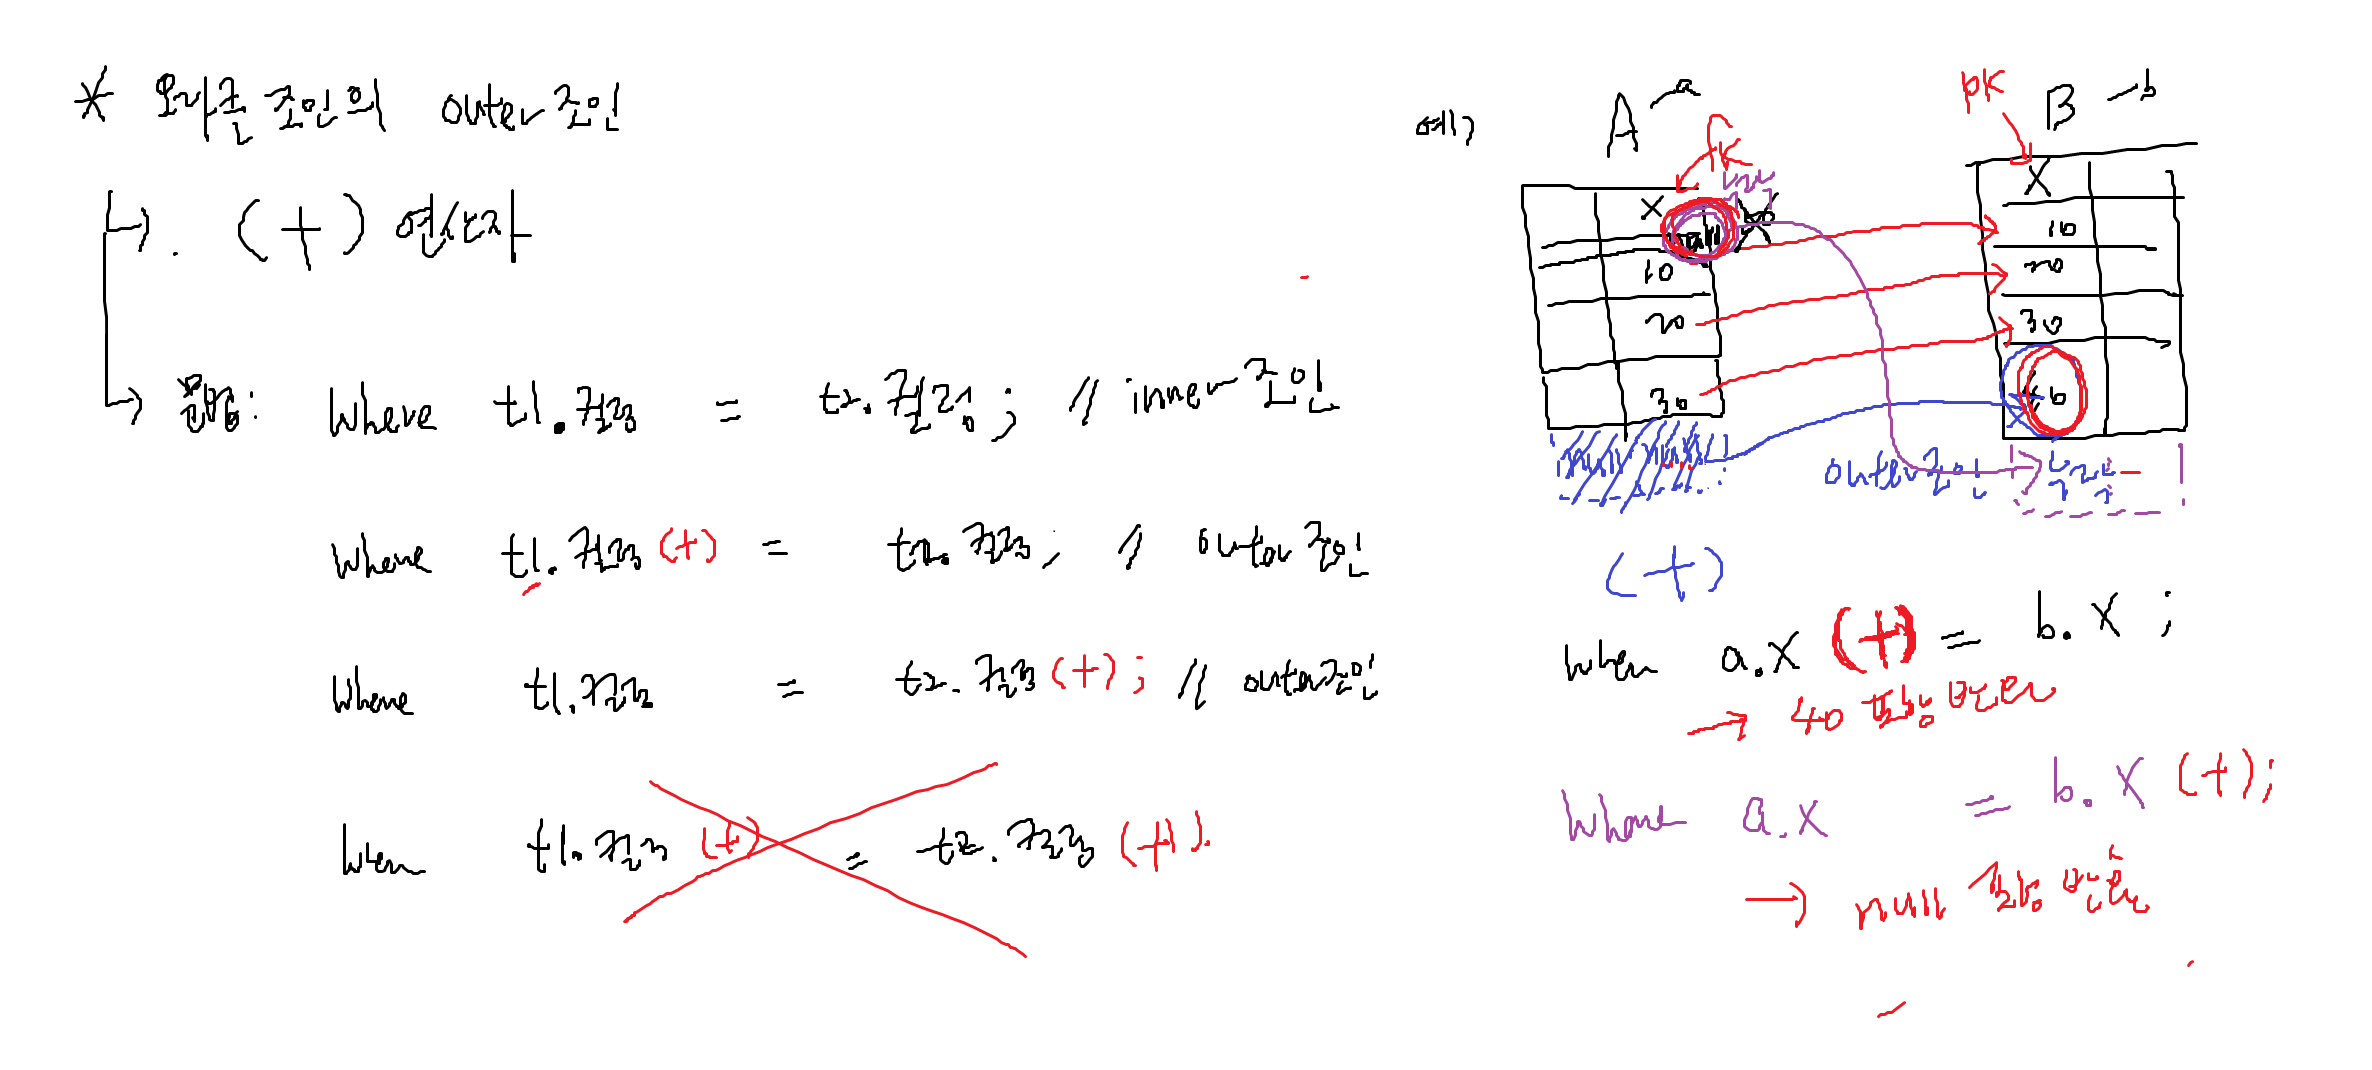 * 오라클 조인의 outer 조인
(+) 연산자
문법: where t1.컬럼 = t2.컬럼; // inner 조인
where t1.컬럼 (+) = t2.컬럼; // outer 조인
where t1.컬럼 = t2.컬럼 (+); // outer 조인
where t1.컬럼 (+) = t2.컬럼 (+).
예)
A a
fk
X
null
10
20
30
null null
pk
B b
X
10
20
30
40
outer 조인
(+)
where a.X (+) = b.X ;
→ 40 포함 받는
where a.X = b.X (+);
→ null